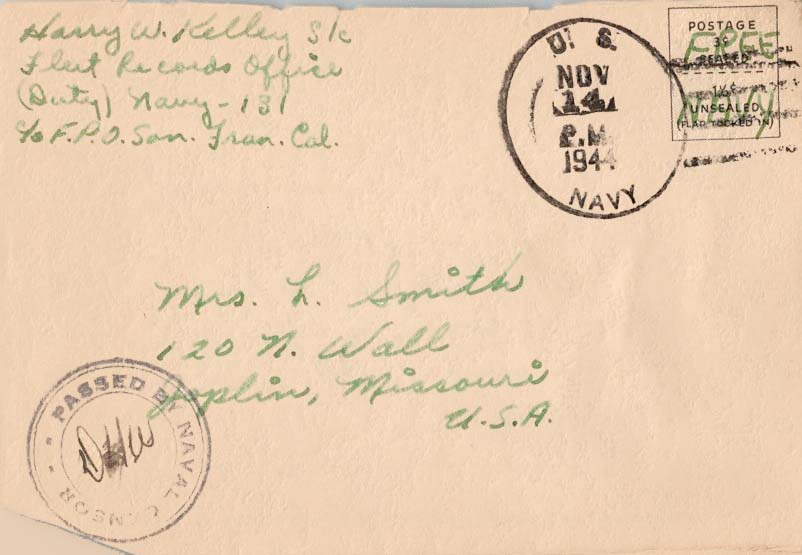 Harry W. Kelley S/c
Fleet Records Office
(Duty) Navy-131
c/o F.P.O. San. Fran. Cal.
U. S.
NOV
14
P.M.
1944
NAVY
POSTAGE
3¢
SEALED
1½¢
UNSEALED
(FLAP TUCKED IN)
FREE
NAVY
Mrs. L. Smith
120 N. Wall
Joplin, Missouri
U.S.A.
PASSED BY NAVAL CENSOR